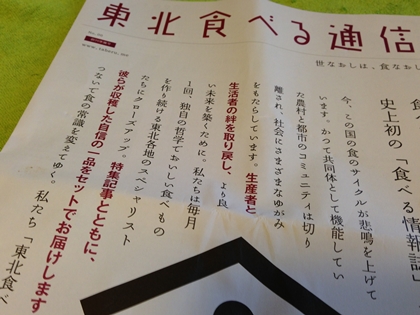 東北食べる通信
www.taberu.me
世なおしは、食なおし
史上初の「食べる情報誌」
今、この国の食のサイクルが悲鳴を上げて
います。かつて共同体として機能してい
た農村と都市のコミュニティは切り
離され、社会にさまざまなゆがみ
をもたらしています。生産者と
生活者の絆を取り戻し、より良
い未来を築くために。私たちは毎月
1回、独自の哲学でおいしい食べもの
を作り続ける東北各地のスペシャリスト
たちにクローズアップ。特集記事とともに、
彼らが収穫した自信の一品をセットでお届けします
つないで食の常識を変えてゆく。私たち「東北食べ